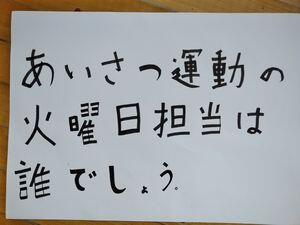 あいさつ運動の
火曜日担当は
誰でしょう。